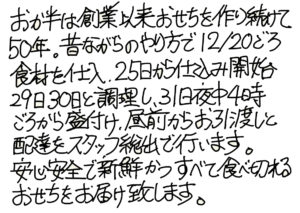 おか半は創業以来おせちを作り続けて
50年。昔ながらのやり方で12/20ごろ
食材を仕入、25日から仕込み開始
29日30日と調理し、31日夜中4時
ごろから盛付け、昼前からお引渡しと
配達をスタッフ総出で行います。
安心安全で新鮮かつすべて食べ切れる
おせちをお届け致します。